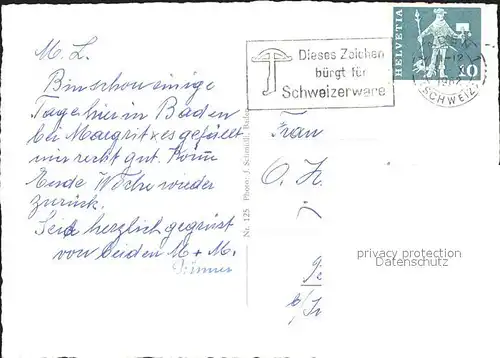 M. L.
Bin schon einige
Tage hier in Baden
bei Margrit & es gefällt
mir recht gut. Komm
Ende Woche wieder
zurück.
Seid herzlich gegrüsst
von beiden M + M.
Nr. 125 Photo: J. Schmidli, Baden
Dieses Zeichen
bürgt für
Schweizerware
HELVETIA
10
BADEN
(SCHWEIZ)
Frau
O. K.
privacy protection
Datenschutz